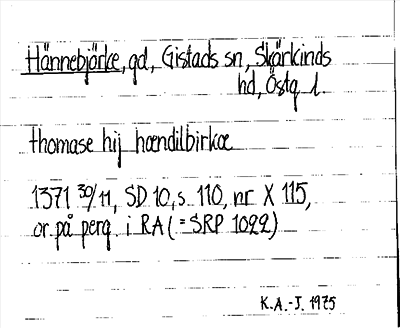 Hännebjörke, gd, Gistads sn, Skärkinds
hd, Östg l.
thomase hij hændilbirkæ
1371 30/11, SD 10, s. 110, nr X 115,
or på perg. i RA (= SRP 1022)
K.A.-J. 1975